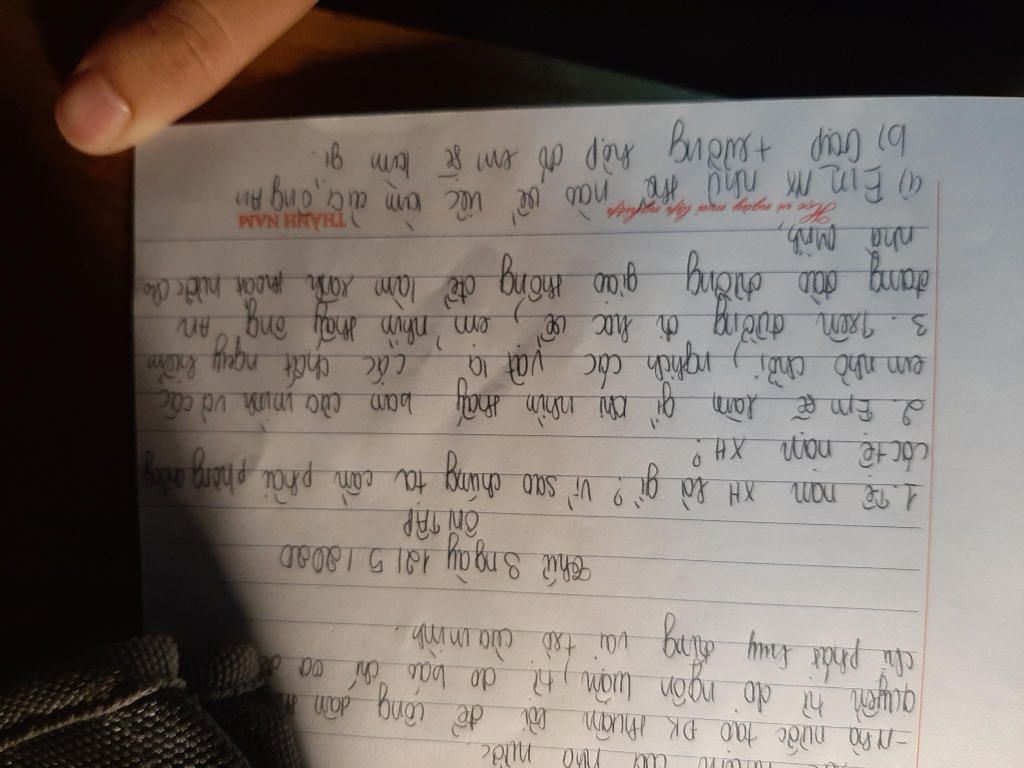 của nhà nước.
- nhà nước tạo ĐK thuận lợi để công dân
quyền tự do ngôn luận, tự do báo chí và
chí phát huy đúng vai trò của mình.
Thứ 3 ngày 12/5/2020
ÔN TẬP
1. Tệ nạn XH là gì? Vì sao chúng ta cần phải phòng chống
các tệ nạn XH?
2. Em sẽ làm gì khi nhìn thấy bạn của mình và các
em nhỏ chơi, nghịch các vật là các chất nguy hiểm
3. Trên đường đi học về, em nhìn thấy ông An
đang đào đường giao thông để làm rãnh thoát nước cho
nhà mình,
Học vì ngày mai lập nghiệp THÀNH NAM
a) Em NX như thế nào về việc làm của ông An
b) Gặp trường hợp đó em sẽ làm gì.